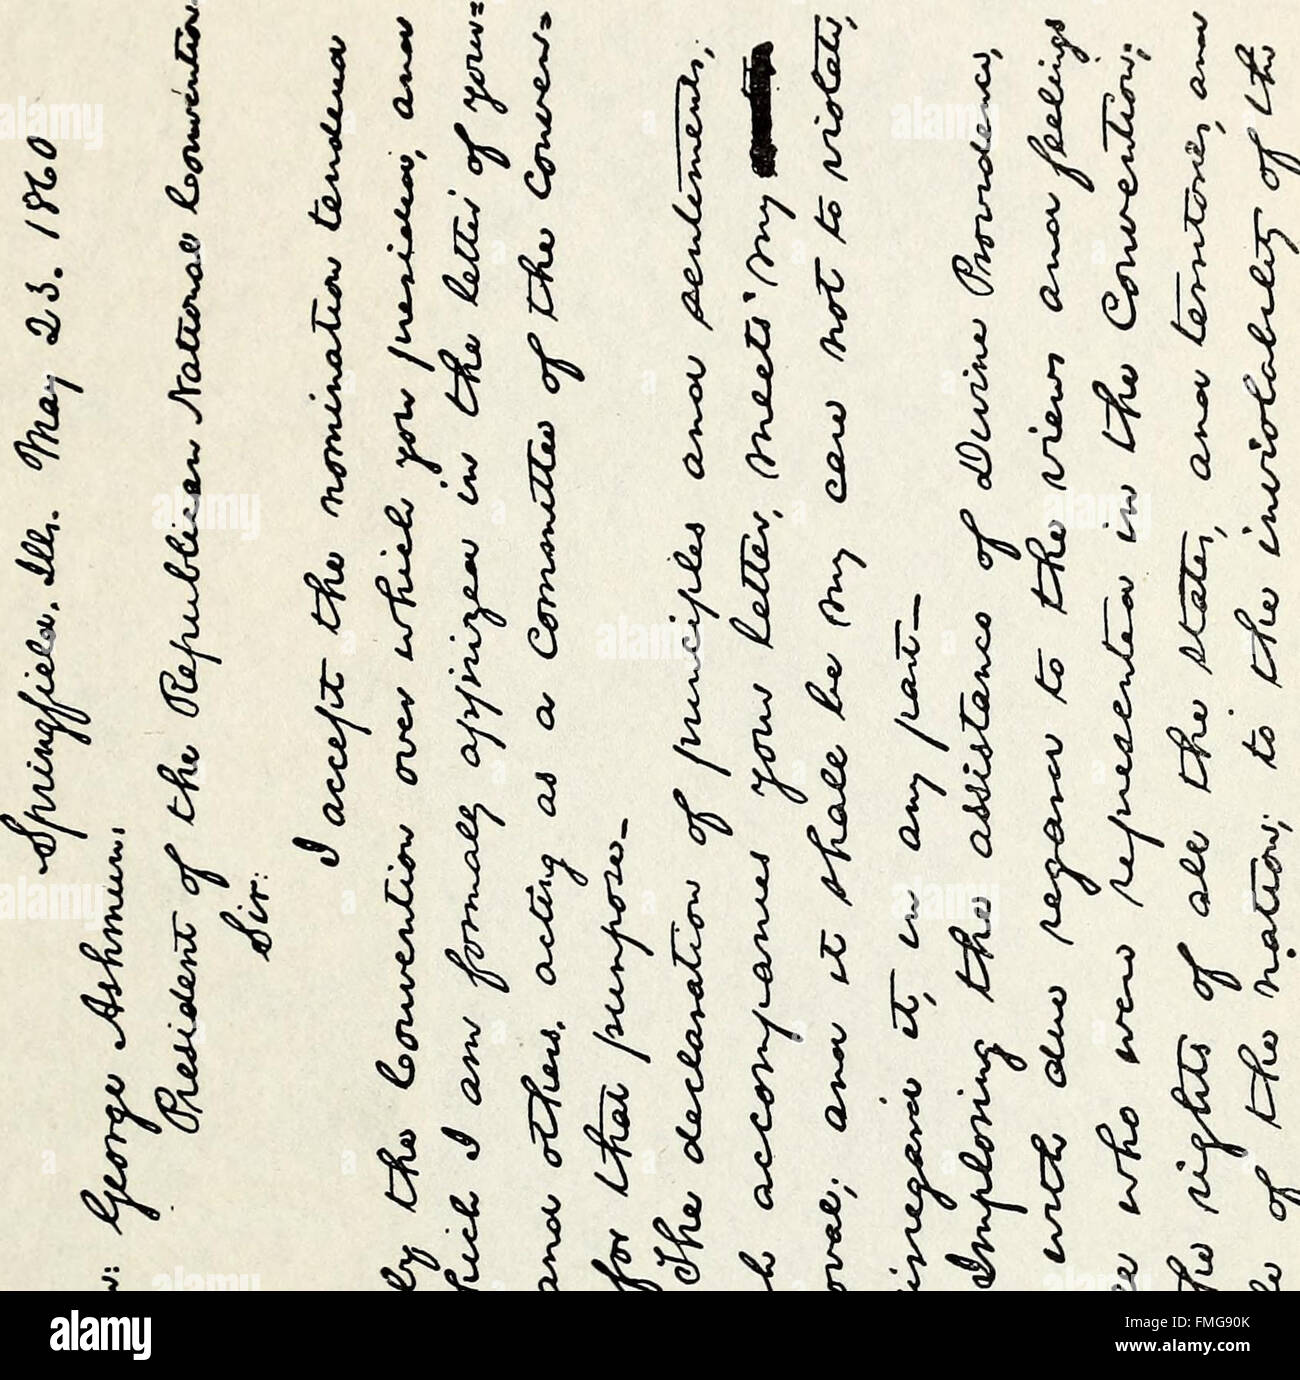 Springfield, Ills. May 23. 1860
n: George Ashmun.
President of the Republican National Convention.
Sir:
I accept the nomination tendered
by the Convention over which you presided, and
hich I am formally apprized in the letter of your=
and others, acting as a committee of the Conven=
for that purpose—
The declaration of principles and sentiments,
h accompanies your letter, meets my
oval; and it shall be my care not to violate,
isregard it, in any part—
Imploring the assistance of Divine Providence,
with due regard to the views and feelings
e who were represented in the Convention;
he rights of all the states, and territories, and
le of the nation; to the inviolability of the
alamy
a
alamy
Image ID: FMG90K
www.alamy.com